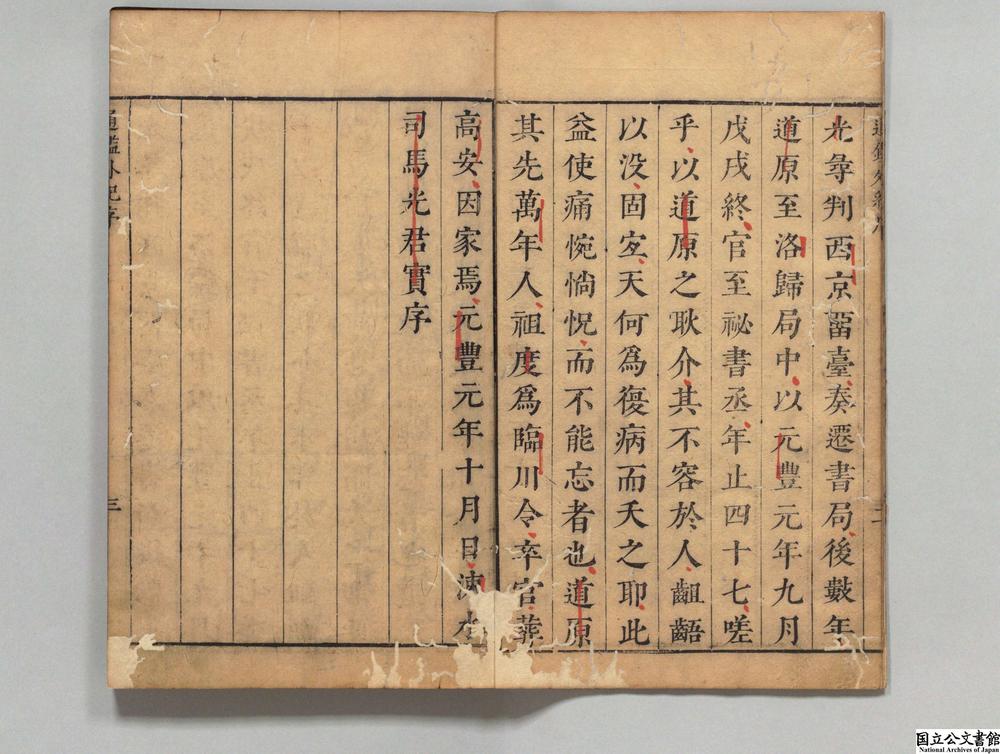 光尋判西京留臺奏遷書局後數年
道原至洛歸局中以元豐元年九月
戊戌終官至祕書丞年止四十七嗟
乎以道原之耿介其不容於人齟齬
以没固宜天何爲復病而夭之耶此
益使痛惋惝怳而不能忘者也道原
其先萬年人祖度爲臨川令卒官葬
高安因家焉元豐元年十月日涑水
司馬光君實序
通鑑外紀序
三
国立公文書館
National Archives of Japan